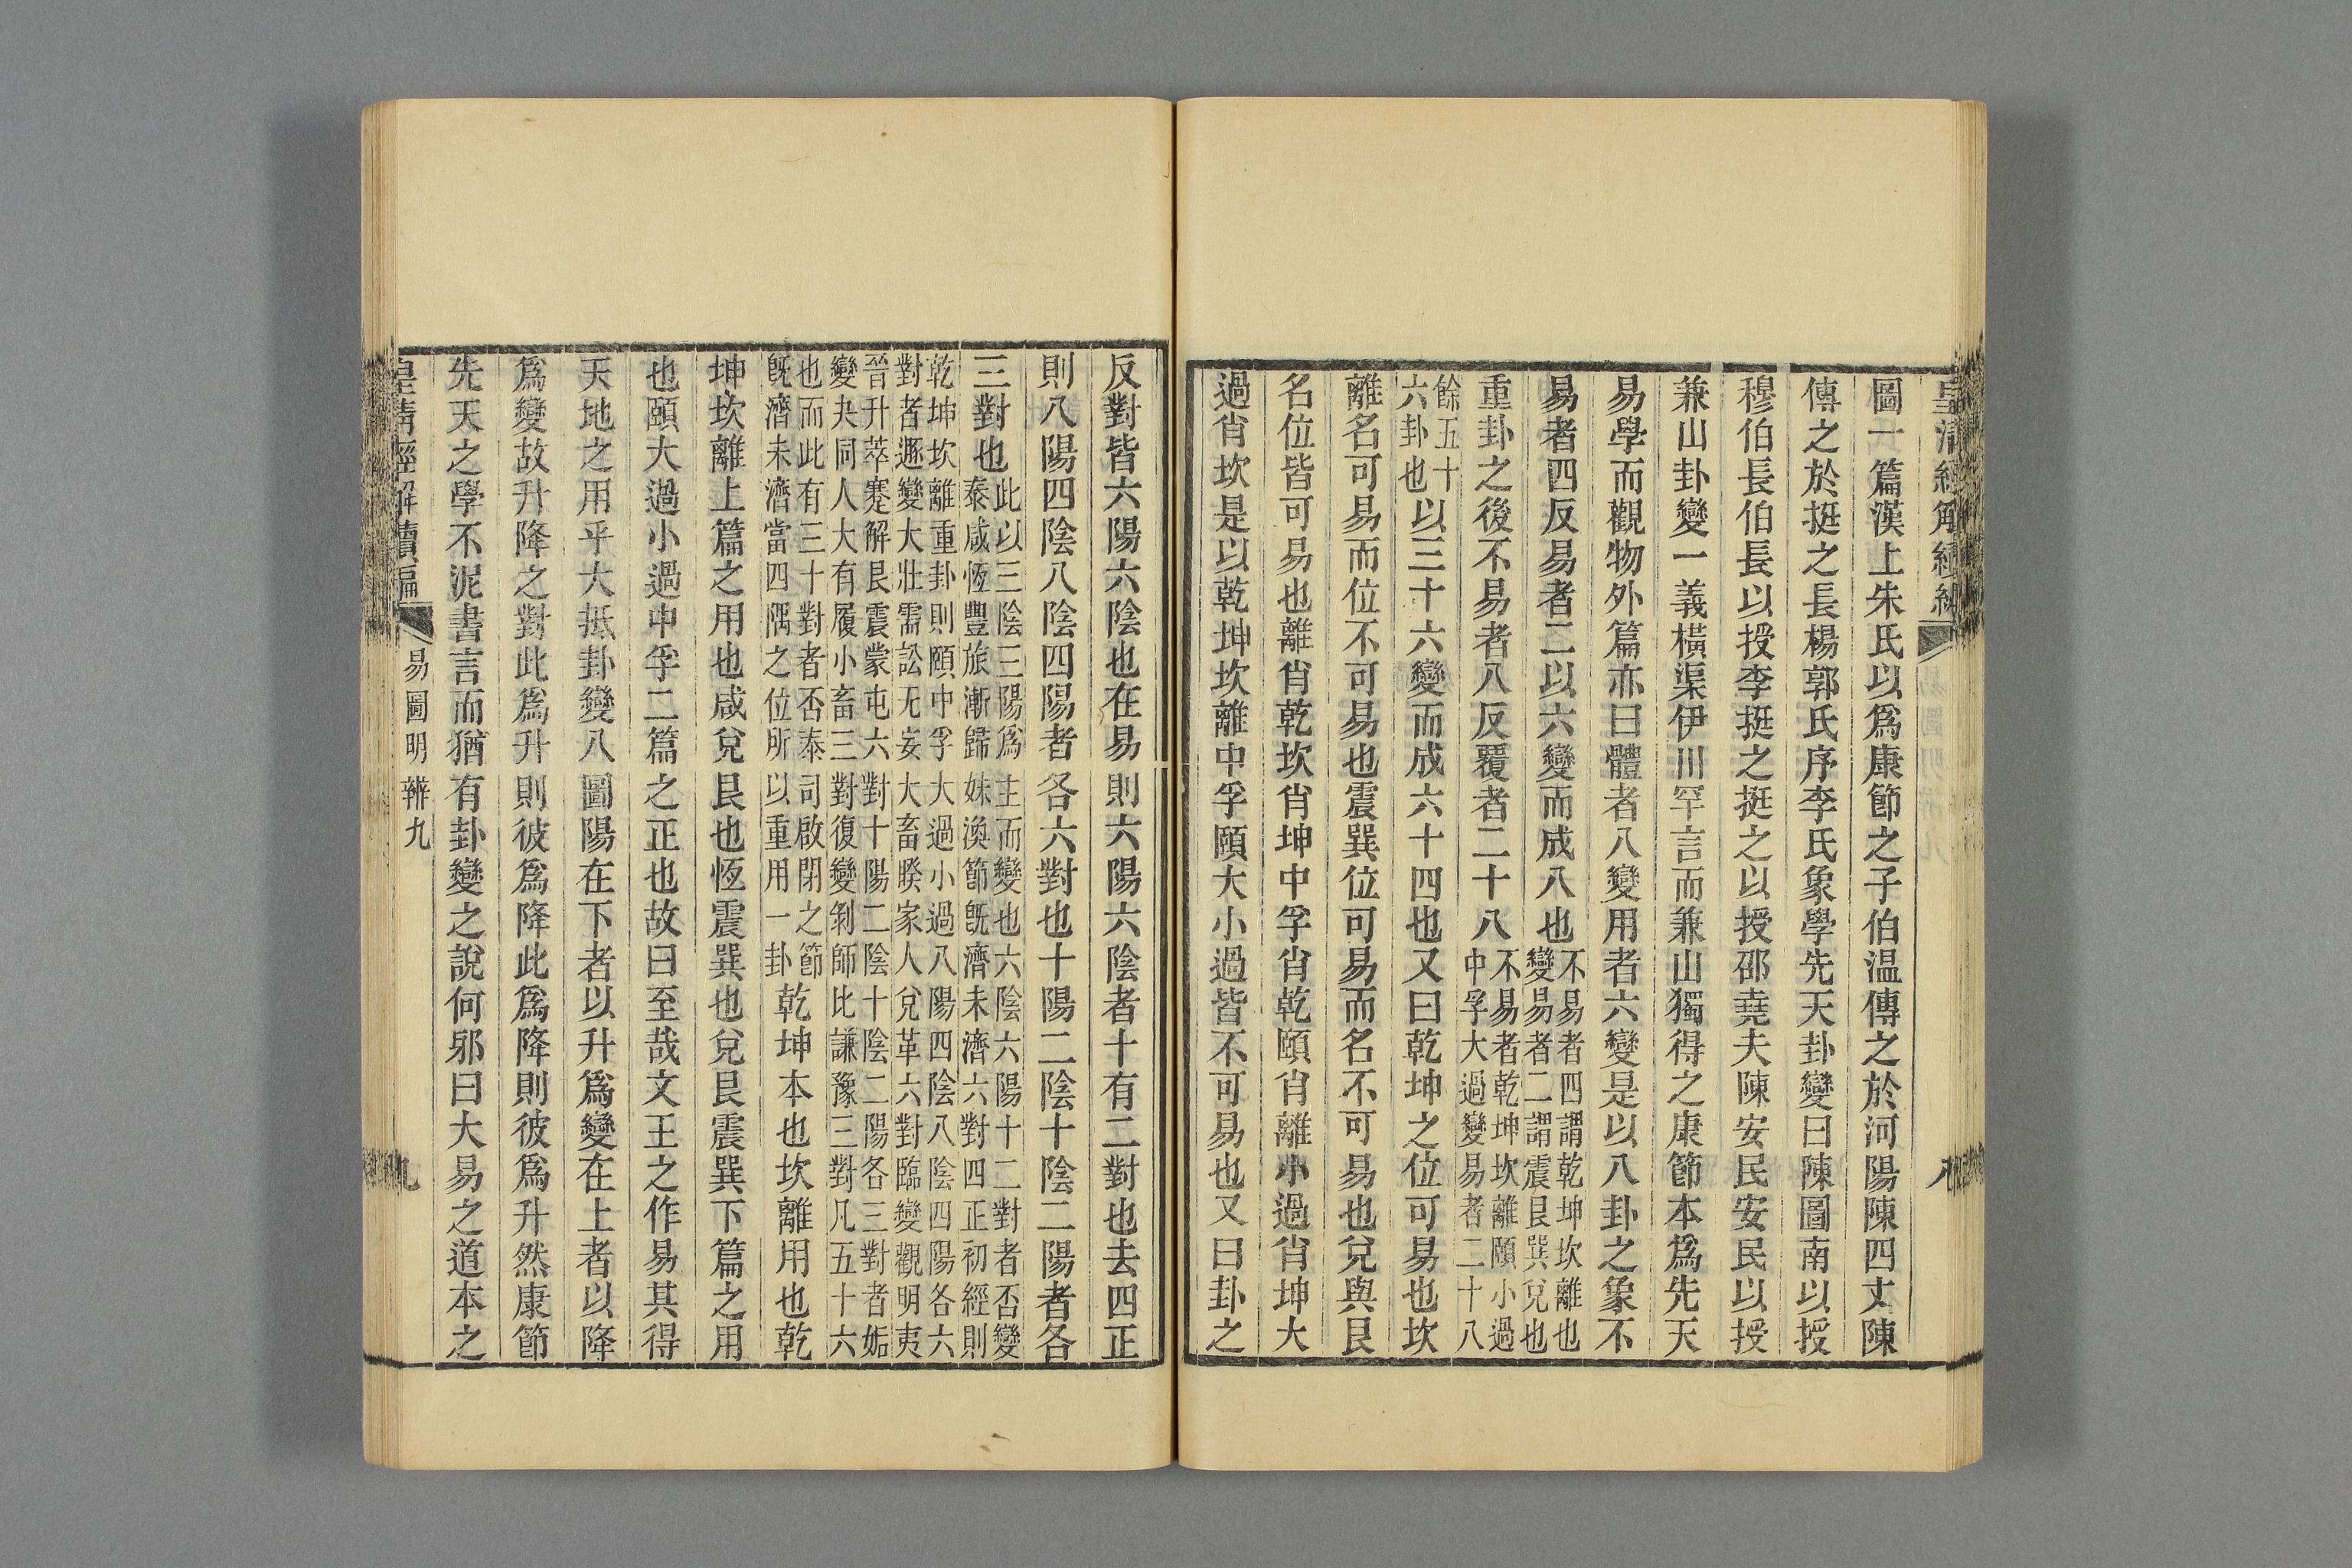 圖一篇漢上朱氏以爲康節之子伯温傳之於河陽陳四丈陳
傳之於挺之長楊郭氏序李氏象學先天卦變曰陳圖南以授
穆伯長伯長以授李挺之挺之以授邵堯夫陳安民安民以授
兼山卦變一義横渠伊川罕言而兼山獨得之康節本爲先天
易學而觀物外篇亦曰體者八變用者六變是以八卦之象不
易者四反易者二以六變而成八也不易者四謂乾坤坎離也
變易者二謂震艮巽兌也
重卦之後不易者八反覆者二十八不易者乾坤坎離頤小過
中孚大過變易者二十八
餘五十
六卦也以三十六變而成六十四也又曰乾坤之位可易也坎
離名可易而位不可易也震巽位可易而名不可易也兌與艮
名位皆可易也離肖乾坎肖坤中孚肖乾頤肖離小過肖坤大
過肖坎是以乾坤坎離中孚頤大小過皆不可易也又曰卦之
八
反對皆六陽六陰也在易則六陽六陰者十有二對也去四正
則八陽四陰八陰四陽者各六對也十陽二陰十陰二陽者各
三對也此以三陰三陽爲主而變也六陰六陽十二對者否變
泰咸恆豐旅漸歸妹渙節旣濟未濟六對四正初經則
乾坤坎離重卦則頤中孚大過小過八陽四陰八陰四陽各六
對者遯變大壯需訟无妄大畜睽家人兌革六對臨變觀明夷
晉升萃蹇解艮震蒙屯六對十陽二陰十陰二陽各三對者姤
變夬同人大有履小畜三對復變剝師比謙豫三對凡五十六
也而此有三十對者否泰司啟閉之節
旣濟未濟當四隅之位所以重用一卦乾坤本也坎離用也乾
坤坎離上篇之用也咸兌艮也恆震巽也兌艮震巽下篇之用
也頤大過小過中孚二篇之正也故曰至哉文王之作易其得
天地之用乎大抵卦變八圖陽在下者以升爲變在上者以降
爲變故升降之對此爲升則彼爲降此爲降則彼爲升然康節
先天之學不泥書言而猶有卦變之說何邪曰大易之道本之
皇清經解續編
易圖明辨九
九